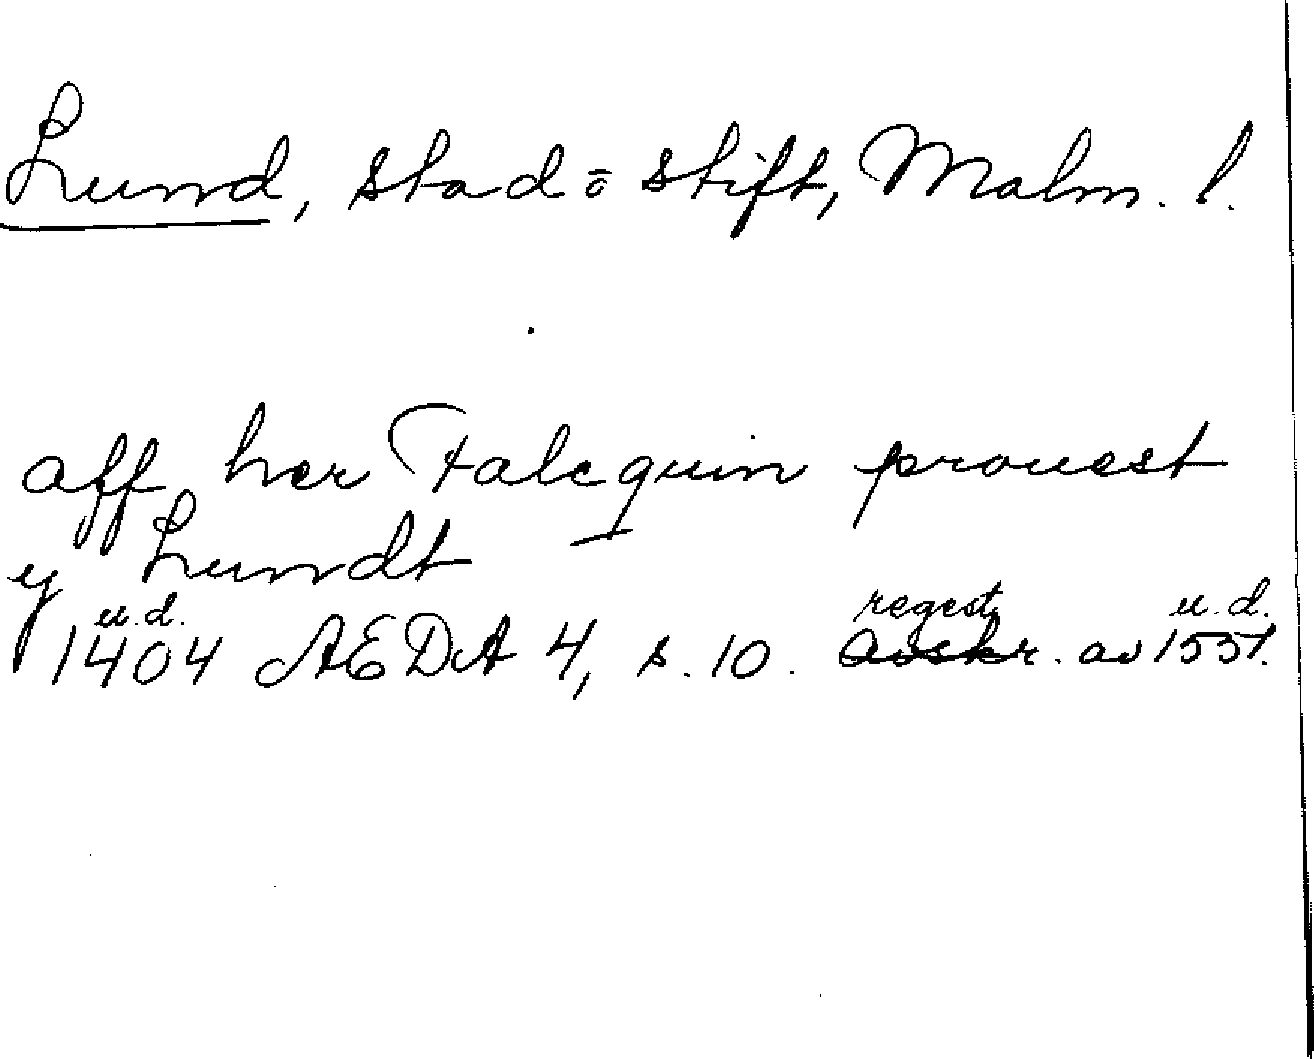 Lund, stad o stift, Malm. l.
aff her Falequin prouest
y Lundt
u.d. regest u.d.
1404 AEDA 4, s. 10. avskr. av 1551.